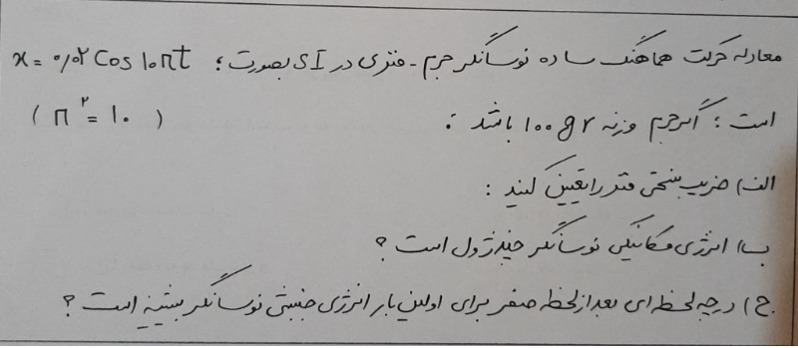 معادله حرکت هماهنگ ساده نوسانگر جرم - فنری در SI بصورت؛ x = ۰/۰۲ Cos ۱۰πt
است؛ اگر جرم وزنه ۱۰۰ gr باشد : (π² = ۱۰)
الف) ضریب سختی فنر را تعیین کنید :
ب) انرژی مکانیکی نوسانگر چند ژول است ؟
ج) در چه لحظه ای بعد از لحظه صفر برای اولین بار انرژی جنبشی نوسانگر بیشینه است ؟